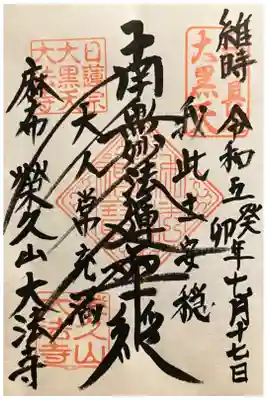 維時令和五癸卯年七月十七日
大黒天
我此土安穏
南無妙法蓮華経
天人常充満
日蓮宗
大黒天
大法寺
麻布 榮久山大法寺
榮久山
大法寺